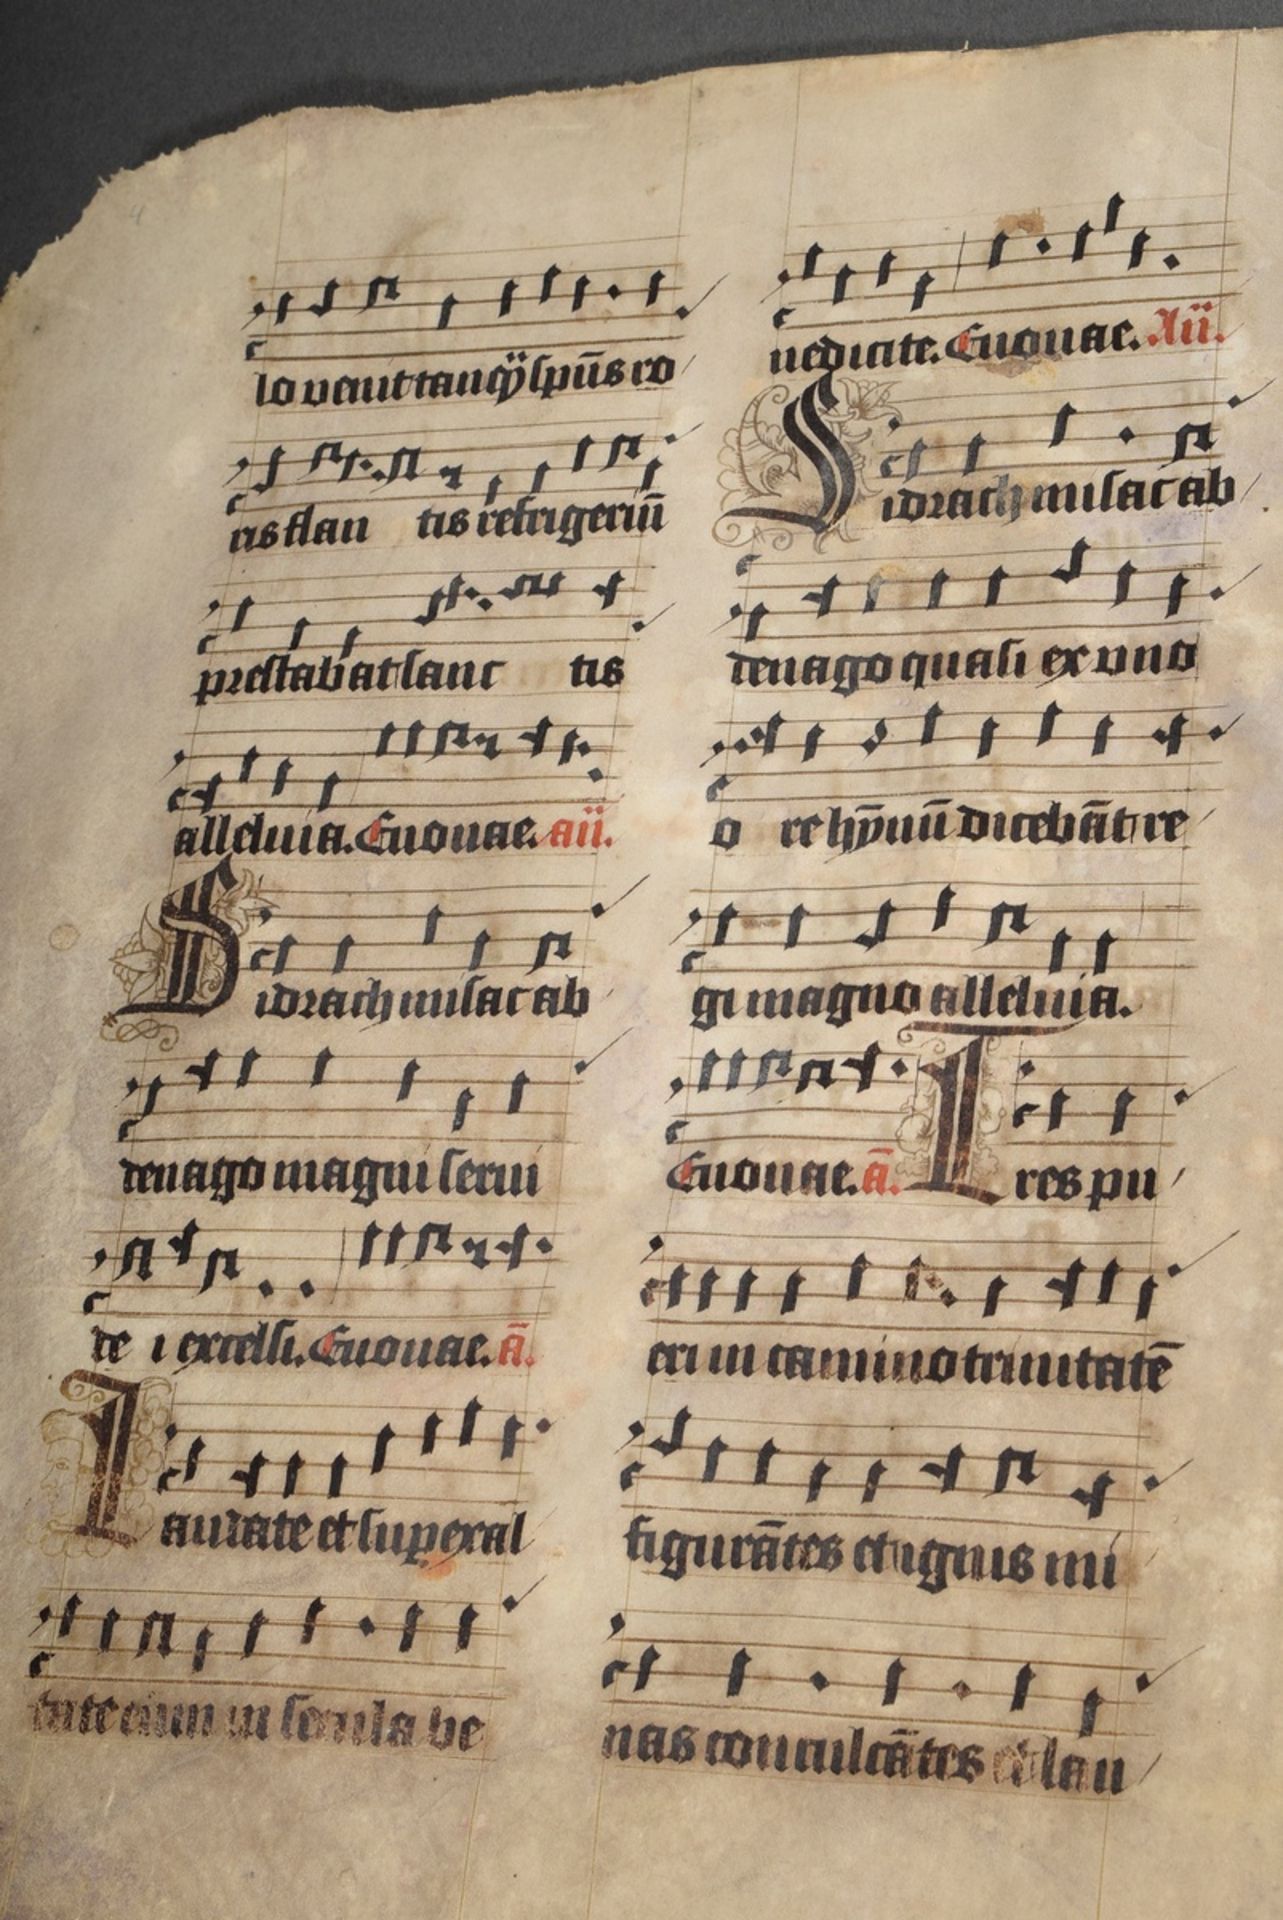 lo venit tanq̄ spūs ro
ris flan tis refrigeriū
prestabat sanc tis
alleluia. Euouae. aii.
Sidrach misac ab
denago magni serui
de i excelsi. Euouae. ā.
Laudate et superexal
tate eum in secula be
nedicite. Euouae. Aii.
Sidrach misac ab
denago quasi ex uno
o re hȳnū dicebāt re
gi magno alleluia.
Euouae. ā. Tres pu
eri in camino trinitatē
figurātes et ignis mi
nas conculcātes et lau